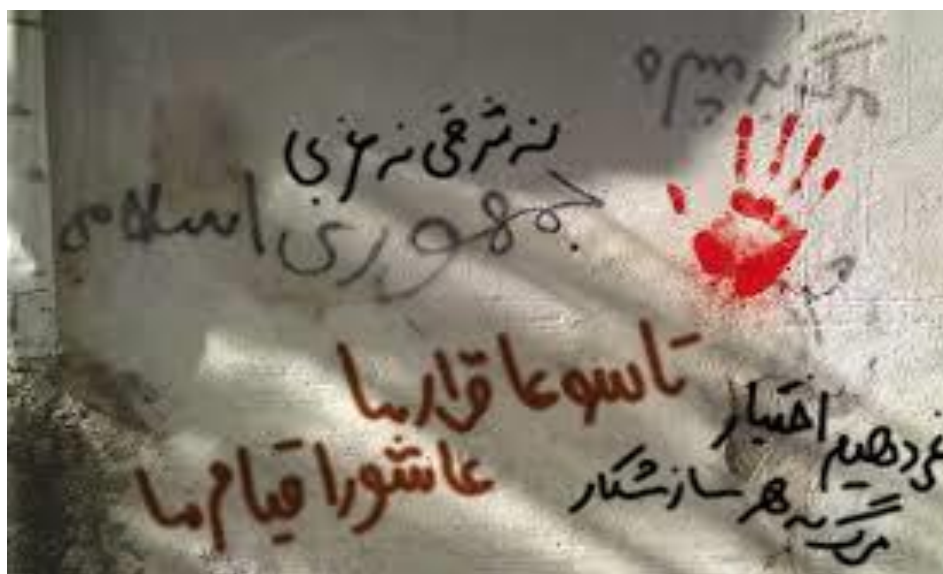 نه شرقی نه غربی
جمهوری اسلامی
تاسوعا قرار ما
عاشورا قیام ما
اختیار
نمی دهیم
مرگ به هر سازشکار